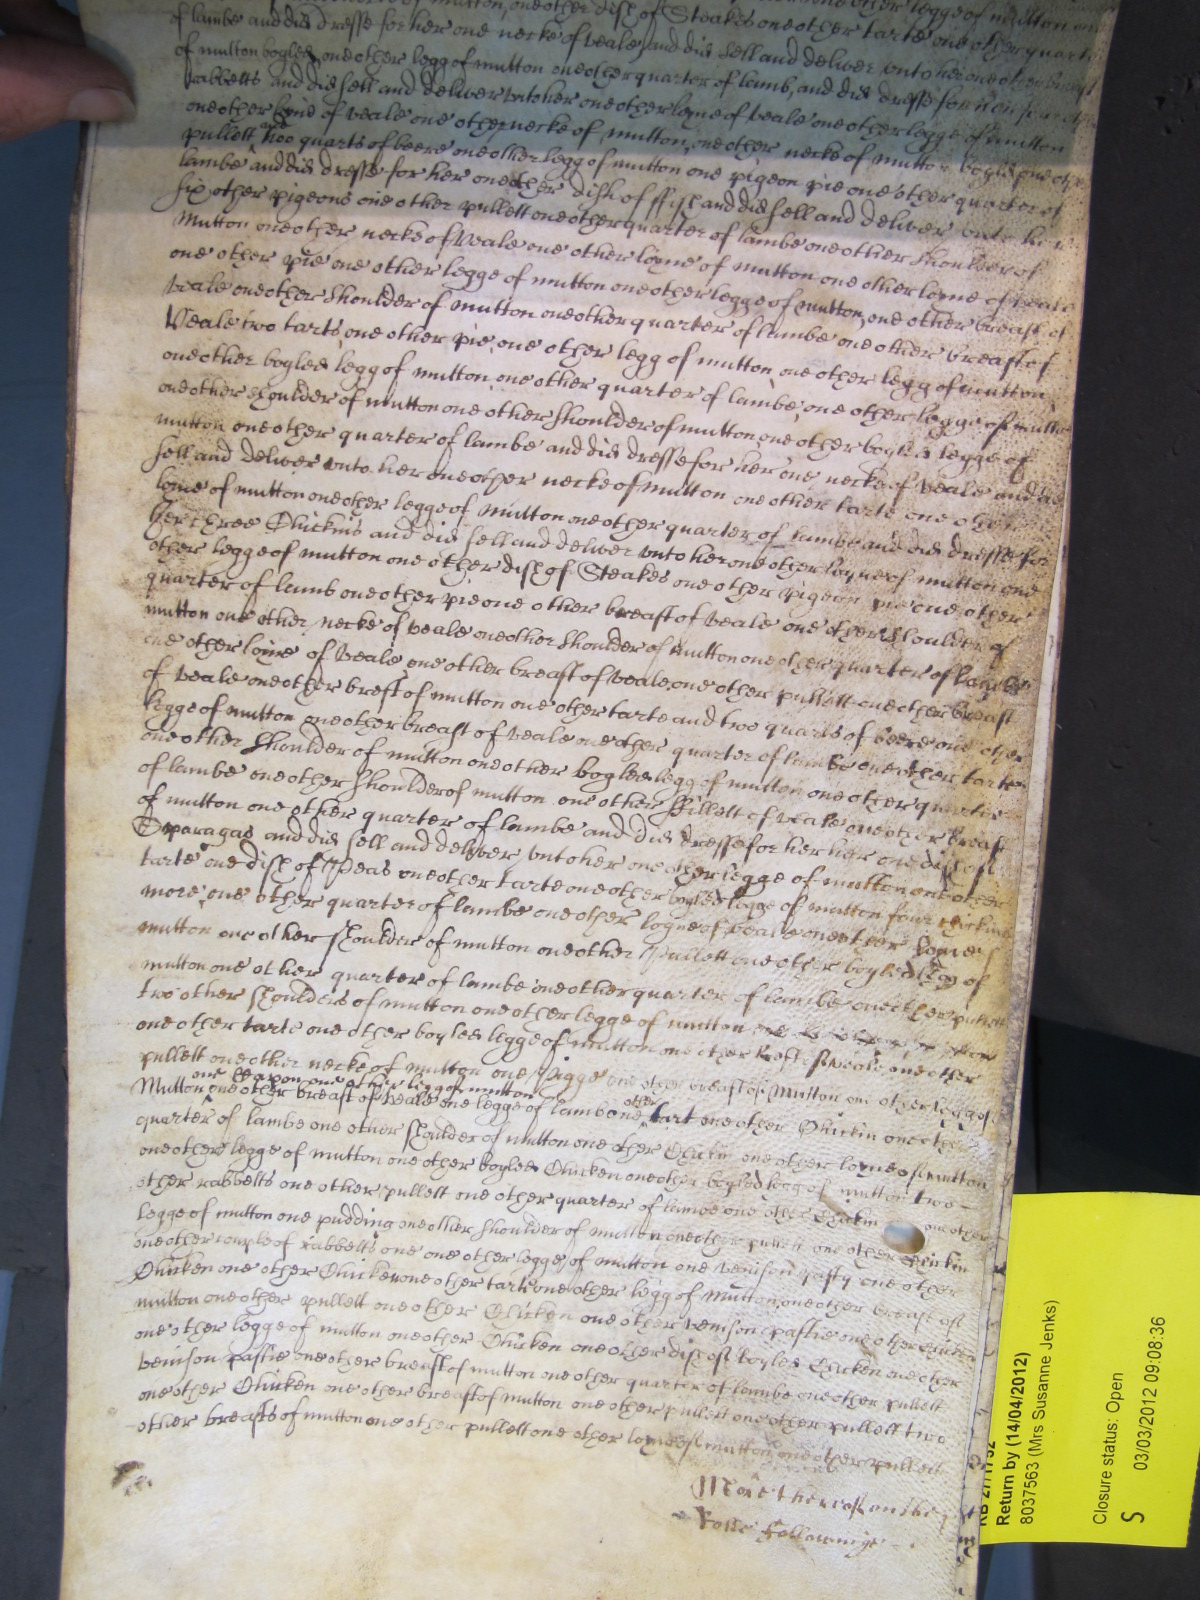 of mutton, one other dish of Steakes one other tarte one other quarter
of lambe and did dresse for her one necke of veale and did sell and deliver unto her one other breast
of mutton boyled, one other legg of mutton one other quarter of lamb, and did dresse for
rabbetts and did sell and deliver unto her one other loyne of veale one other legge of mutton
one other loine of veale one other necke of mutton, one other necke of mutton boyled one other
pullett two quarts of beere one other legg of mutton one pigeon pie one other quarter of
lambe and did dresse for her one other dish of ffish and did sell and deliver unto her
six other pigeons one other pullett one other quarter of lambe one other shoulder of
mutton one other necke of veale one other loyne of mutton one other loyne of veale
one other pie one other legge of mutton one other legge of mutton, one other breast of
veale one other shoulder of mutton one other quarter of lambe one other breast of
Veale two tarts, one other pie, one other legg of mutton one other legg of mutton
one other boyled legg of mutton, one other quarter of lambe, one other legge of mutton
one other shoulder of mutton one other shoulder of mutton one other boyled legge of
mutton one other quarter of lambe and did dresse for her one necke of veale and did
sell and deliver unto her one other necke of mutton one other tarte one other
loine of mutton one other legge of mutton one other quarter of lambe and did dresse for
her three Chickins and did sell and deliver unto her one other loyne of mutton one
other legge of mutton one other dish of Steakes one other pigeon pie one other
quarter of lamb one other pie one other breast of veale one other shoulder of
mutton one other necke of veale one other shoulder of mutton one other quarter of lambe
one other loine of veale, one other breast of veale, one other pullett one other breast
of veale one other brest of mutton one other tarte and two quarts of beere one other
legge of mutton one other breast of veale one other quarter of lambe one other tarte
one other shoulder of mutton one other boyled legg of mutton one other quarter
of lambe one other shoulder of mutton one other ffillett of veale one other breast
of mutton one other quarter of lambe and did dresse for her one dish of
Sparagas and did sell and deliver unto her one other legge of mutton one other
tarte one dish of Peas one other tarte one other boyled legge of mutton four chickins
more, one other quarter of lambe one other loyne of veale one other loyne of
mutton one other shoulder of mutton one other pullett one other boyled legg of
mutton one other quarter of lambe one other quarter of lambe one other pullett
two other shoulders of mutton one other legge of mutton
one other tarte one other boyled legge of mutton one other veale one other
pullett one other necke of mutton one Pigge one other breast of Mutton one other legge of
one Capon one other legg of mutton
Mutton one other breast of veale one legge of lamb one other tart one other Chickin one other
quarter of lambe one other shoulder of mutton one other Chickin one other loyne of mutton
one other legge of mutton one other boyled Chicken one other boyled legg of mutton two
other rabbetts one other pullett one other quarter of lambe one other Chickin one other
legge of mutton one pudding one other shoulder of mutton one other pullett one other Chickin
one other couple of rabbetts one one other legge of mutton one venison pasty one other
Chicken one other Chicken one other tarte one other legg of mutton, one other breast of
mutton one other pullett one other Chicken one other venison pastie one other Chicken
one other legge of mutton one other Chicken one other dish of boyled Chicken one other
venison pastie one other breast of mutton one other quarter of lambe one other pullett
one other Chicken one other breast of mutton one other pullett one other pullett two
other breasts of mutton one other pullett one other loyne of mutton one other pullett
More thereof on the
Rolle following
Return by (14/04/2012)
8037563 (Mrs Susanne Jenks)
Closure status: Open
S 03/03/2012 09:08:36